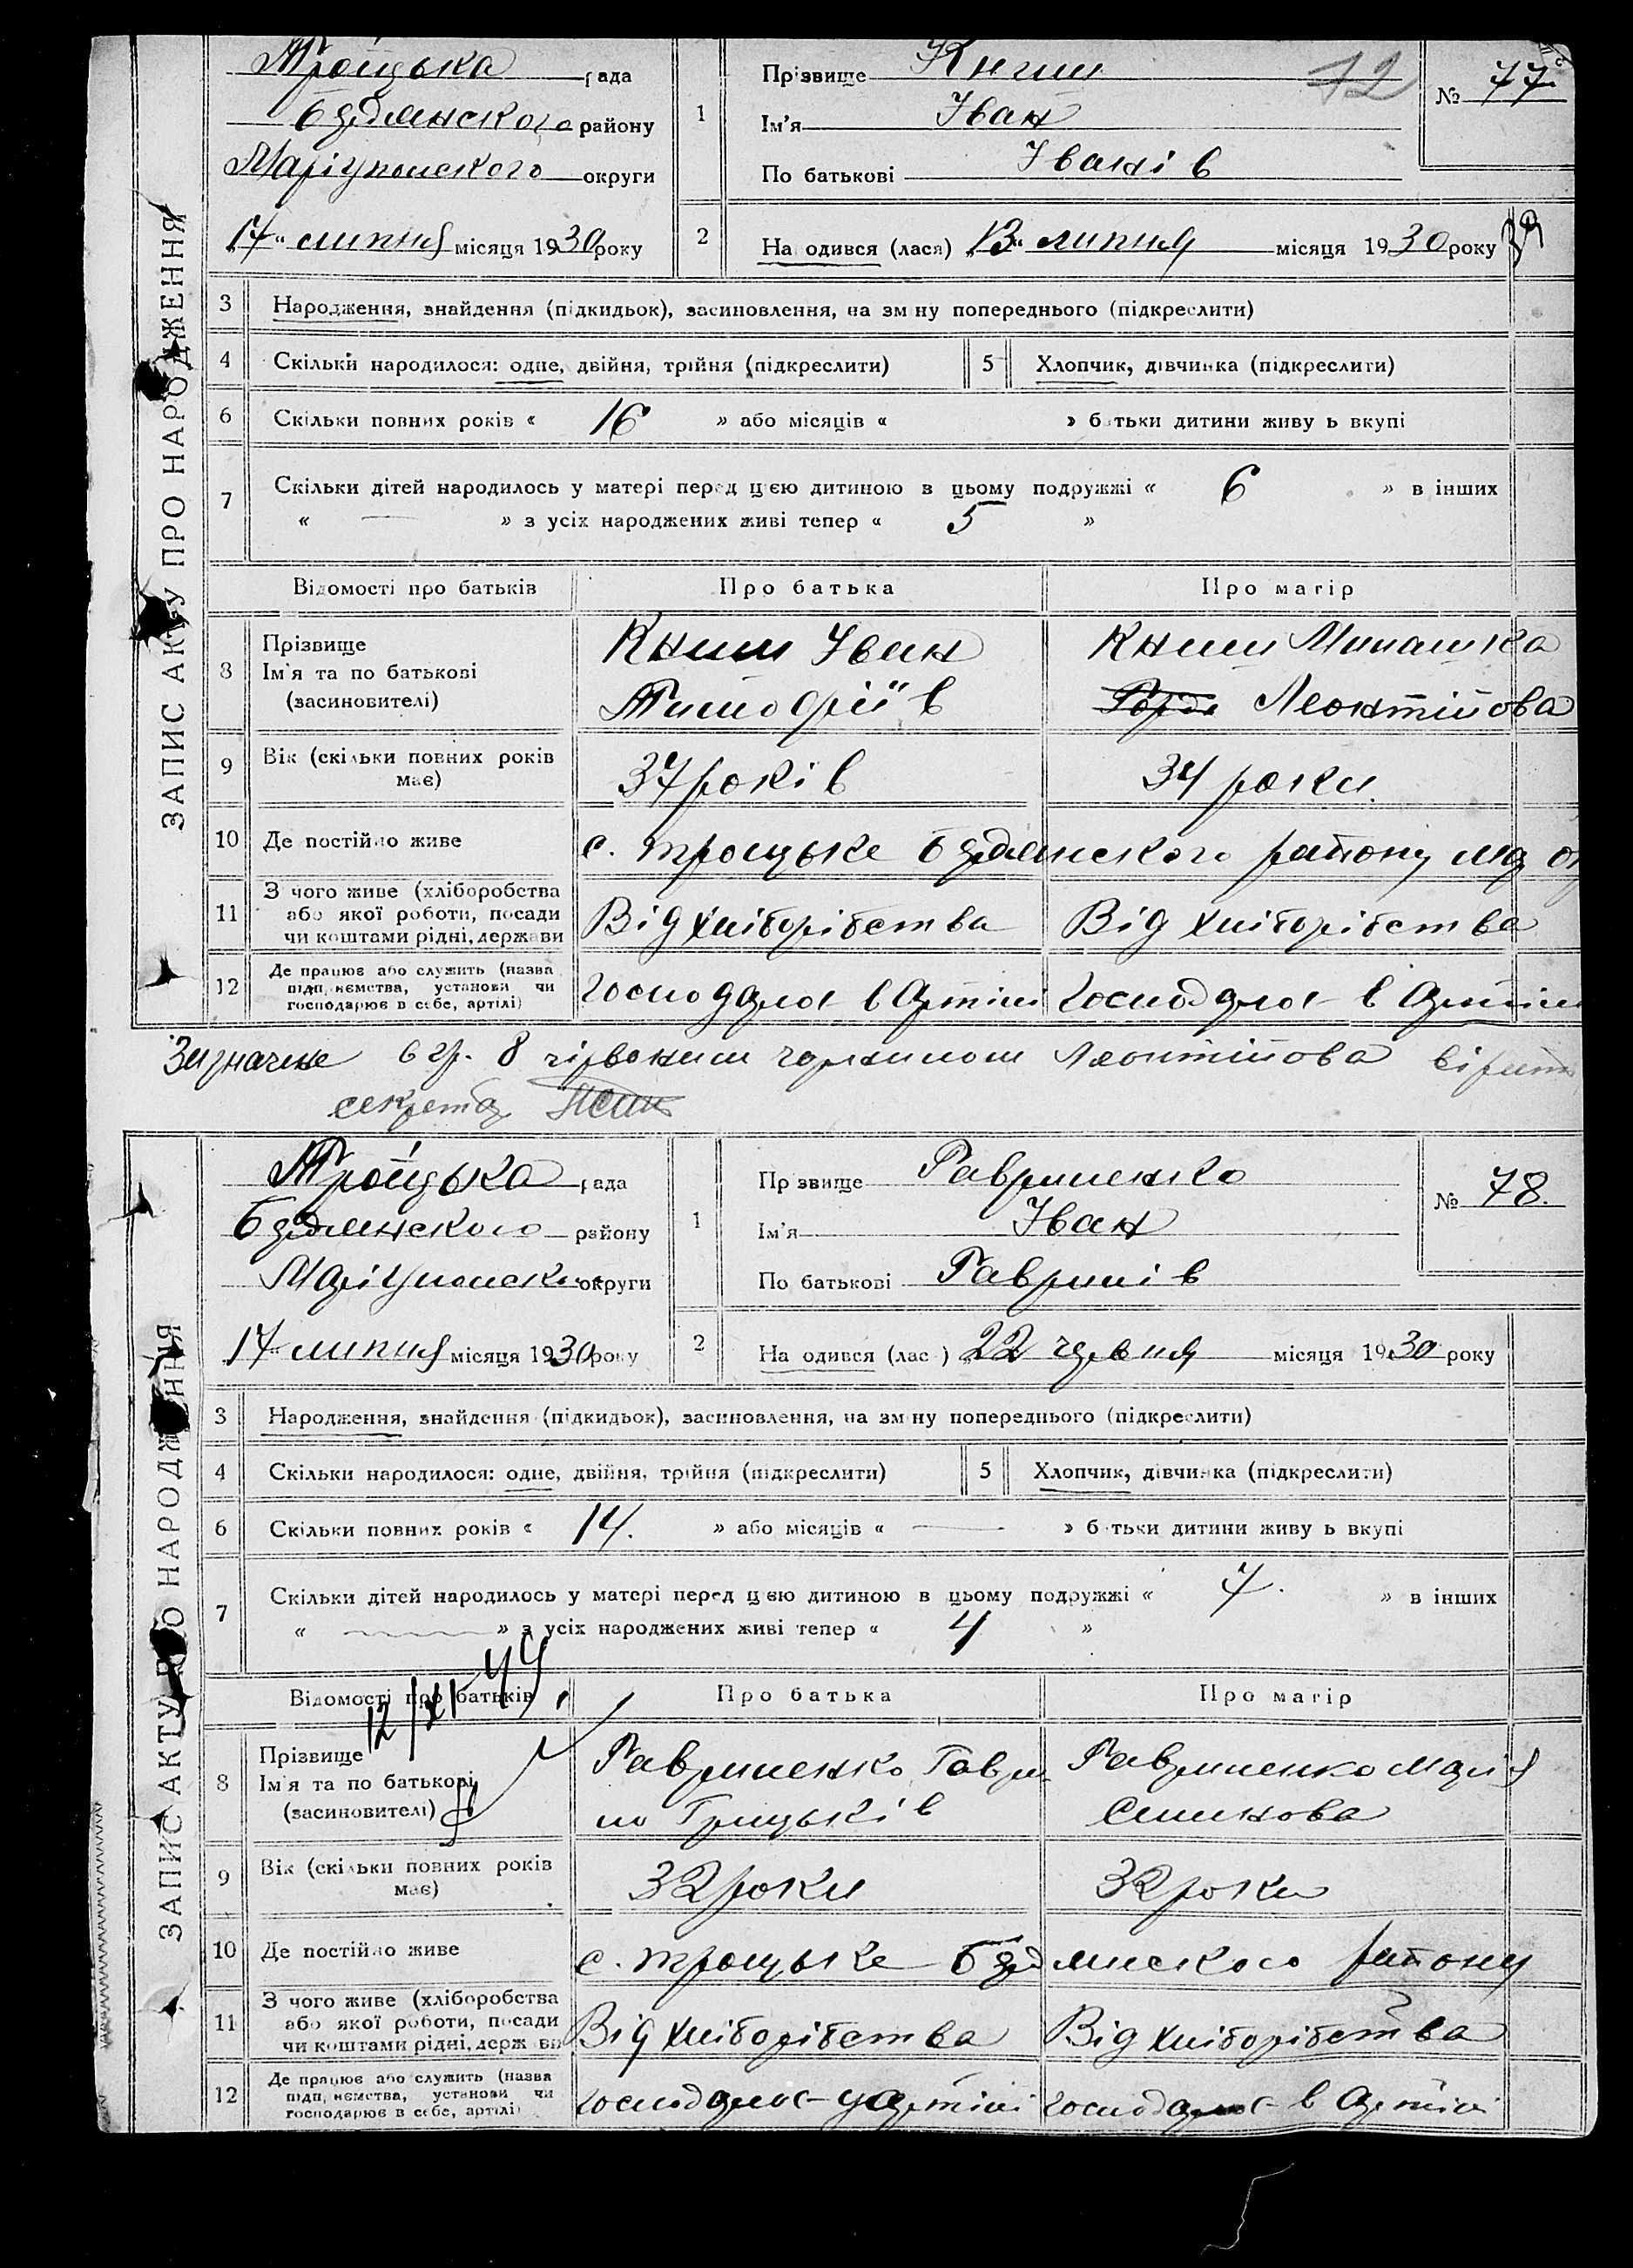 ЗАПИС АКТУ ПРО НАРОДЖЕННЯ
Троїцька рада
Бердянского району
Маріупольского округи
17 липня місяця 1930 року
1 Прізвище Книш
Ім'я Іван
По батькові Іванів
12
№ 77
2 На одився (лася) 13 липня місяця 1930 року
3 Народження, знайдення (підкидьок), засиновлення, на зм ну попереднього (підкреслити)
4 Скільки народилося: одне, двійня, трійня (підкреслити) 5 Хлопчик, дівчинка (підкреслити)
6 Скільки повних років « 16 » або місяців « » б тьки дитини живу ь вкупі
7 Скільки дітей народилось у матері перед цією дитиною в цьому подружжі « 6 » в інших
« — » з усіх народжених живі тепер « 5 »
Відомості про батьків Про батька Про матір
8 Прізвище Ім'я та по батькові (засиновителі)
Книш Іван
Тимофіїв
Книш
Леонтійова
9 Вік (скільки повних років має) 37 років 34 роки
10 Де постійно живе с. Троцьке Бердянского району
11 З чого живе (хліборобства або якої роботи, посади чи коштами рідні, держави Від хліборібства Від хліборібства
12 Де працює або служить (назва підп, ємства, установи чи господарює в себе, артілі) господарює в Артілі господарює в Артілі
Зазначене в гр. 8 червоним чорнилом Леонтійова
секретар
ЗАПИС АКТУ ПРО НАРОДЖЕННЯ
Троїцька рада
Бердянского району
Маріупольск округи
17 липня місяця 1930 року
1 Пр звище Гавриленко
Ім'я Іван
По батькові Гаврилів
№ 78.
2 На одився (лас ) 22 червня місяця 1930 року
3 Народження, знайдення (підкидьок), засиновлення, на зм ну попереднього (підкреслити)
4 Скільки народилося: одне, двійня, трійня (підкреслити) 5 Хлопчик, дівчинка (підкреслити)
6 Скільки повних років « 14. » або місяців « — » б тьки дитини живу ь вкупі
7 Скільки дітей народилось у матері перед цією дитиною в цьому подружжі « 7. » в інших
« — » з усіх народжених живі тепер « 4 »
Відомості про батьків Про батька Про матір
8 Прізвище Ім'я та по батькові (засиновителі)
Гавриленко Гаври
ло Грицьків
Гавриленко Марія
Семенова
9 Вік (скільки повних років має) 32 роки 32 роки
10 Де постійно живе с. Троцьке Бердянского району
11 З чого живе (хліборобства або якої роботи, посади чи коштами рідні, держ ви Від хліборібства Від хліборібства
12 Де працює або служить (назва підп, ємства, установи чи господарює в себе, артілі) господарює у артілі господарює в Артілі